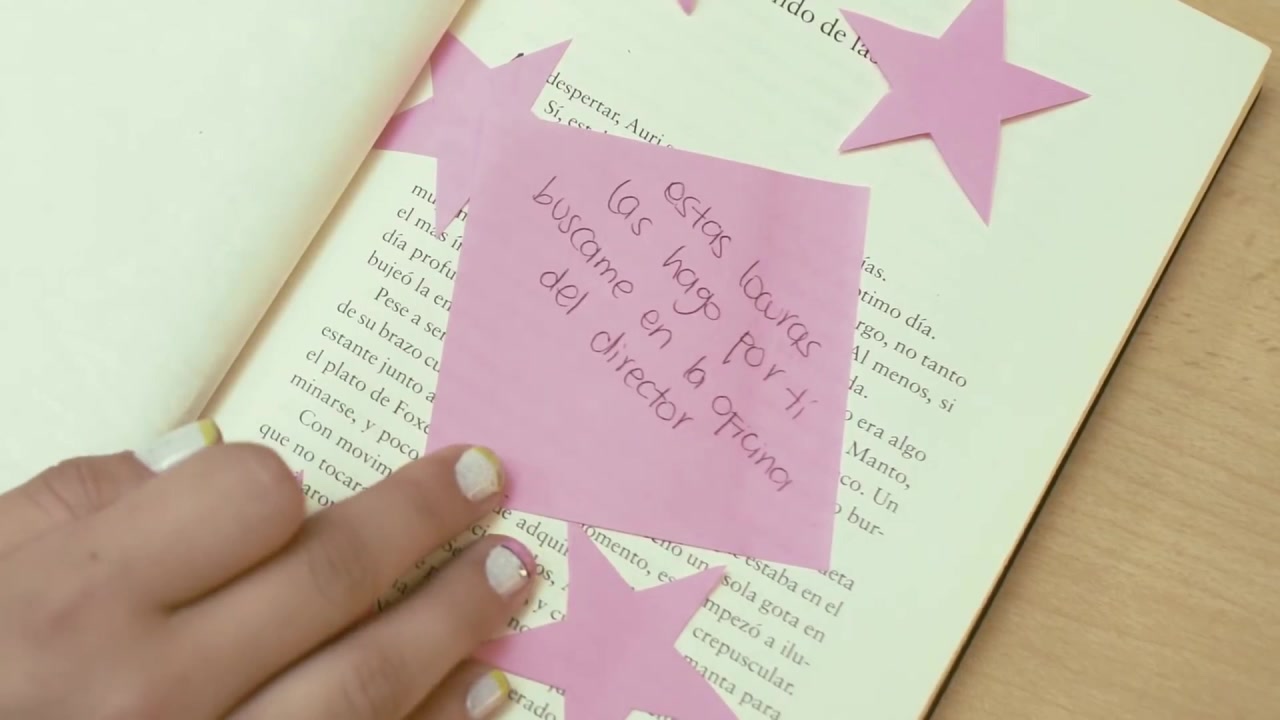 ndo de la
despertar, Auri
Sí, est
mu
el más ín
día profu
bujeó la en
Pese a ser
de su brazo cu
estante junto a
el plato de Foxe
minarse, y poco
Con movim
que no tocar
aron
estas locuras
las hago por ti
buscame en la oficina
del director
ías.
ptimo día.
rgo, no tanto
Al menos, si
da.
o era algo
Manto,
co. Un
o bur-
aeta
e estaba en el
sola gota en
mpezó a ilu-
crepuscular.
manta para
de adquir
omento, es
y c
erado